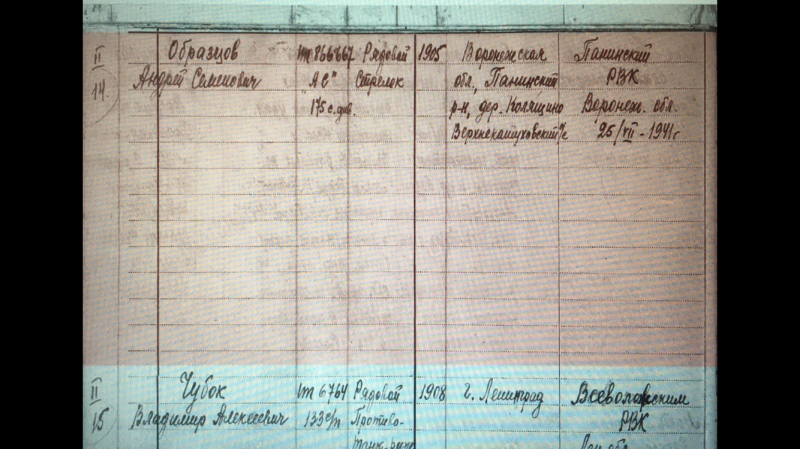 II
14.
Образцов
Андрей Семенович
m 866667
"АС"
175 с.див.
Рядовой
Стрелок
1905
Воронежская
обл., Панинский
р-н, дер.
Панинский
РВК
Воронеж. обл.
25/VII-1941г
II
15
Чубок
Владимир Алексеевич
m 6764
133 с/п
Рядовой
Противо-
1908
г. Ленинград
Всеволожским
РВК